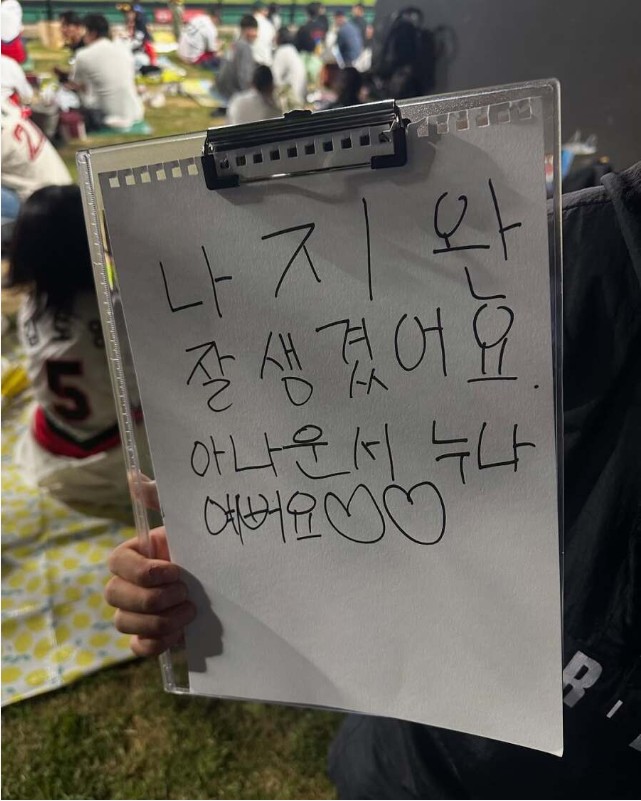 나지완
잘 생겼어요.
아나운서 누나
예뻐요♡♡
5